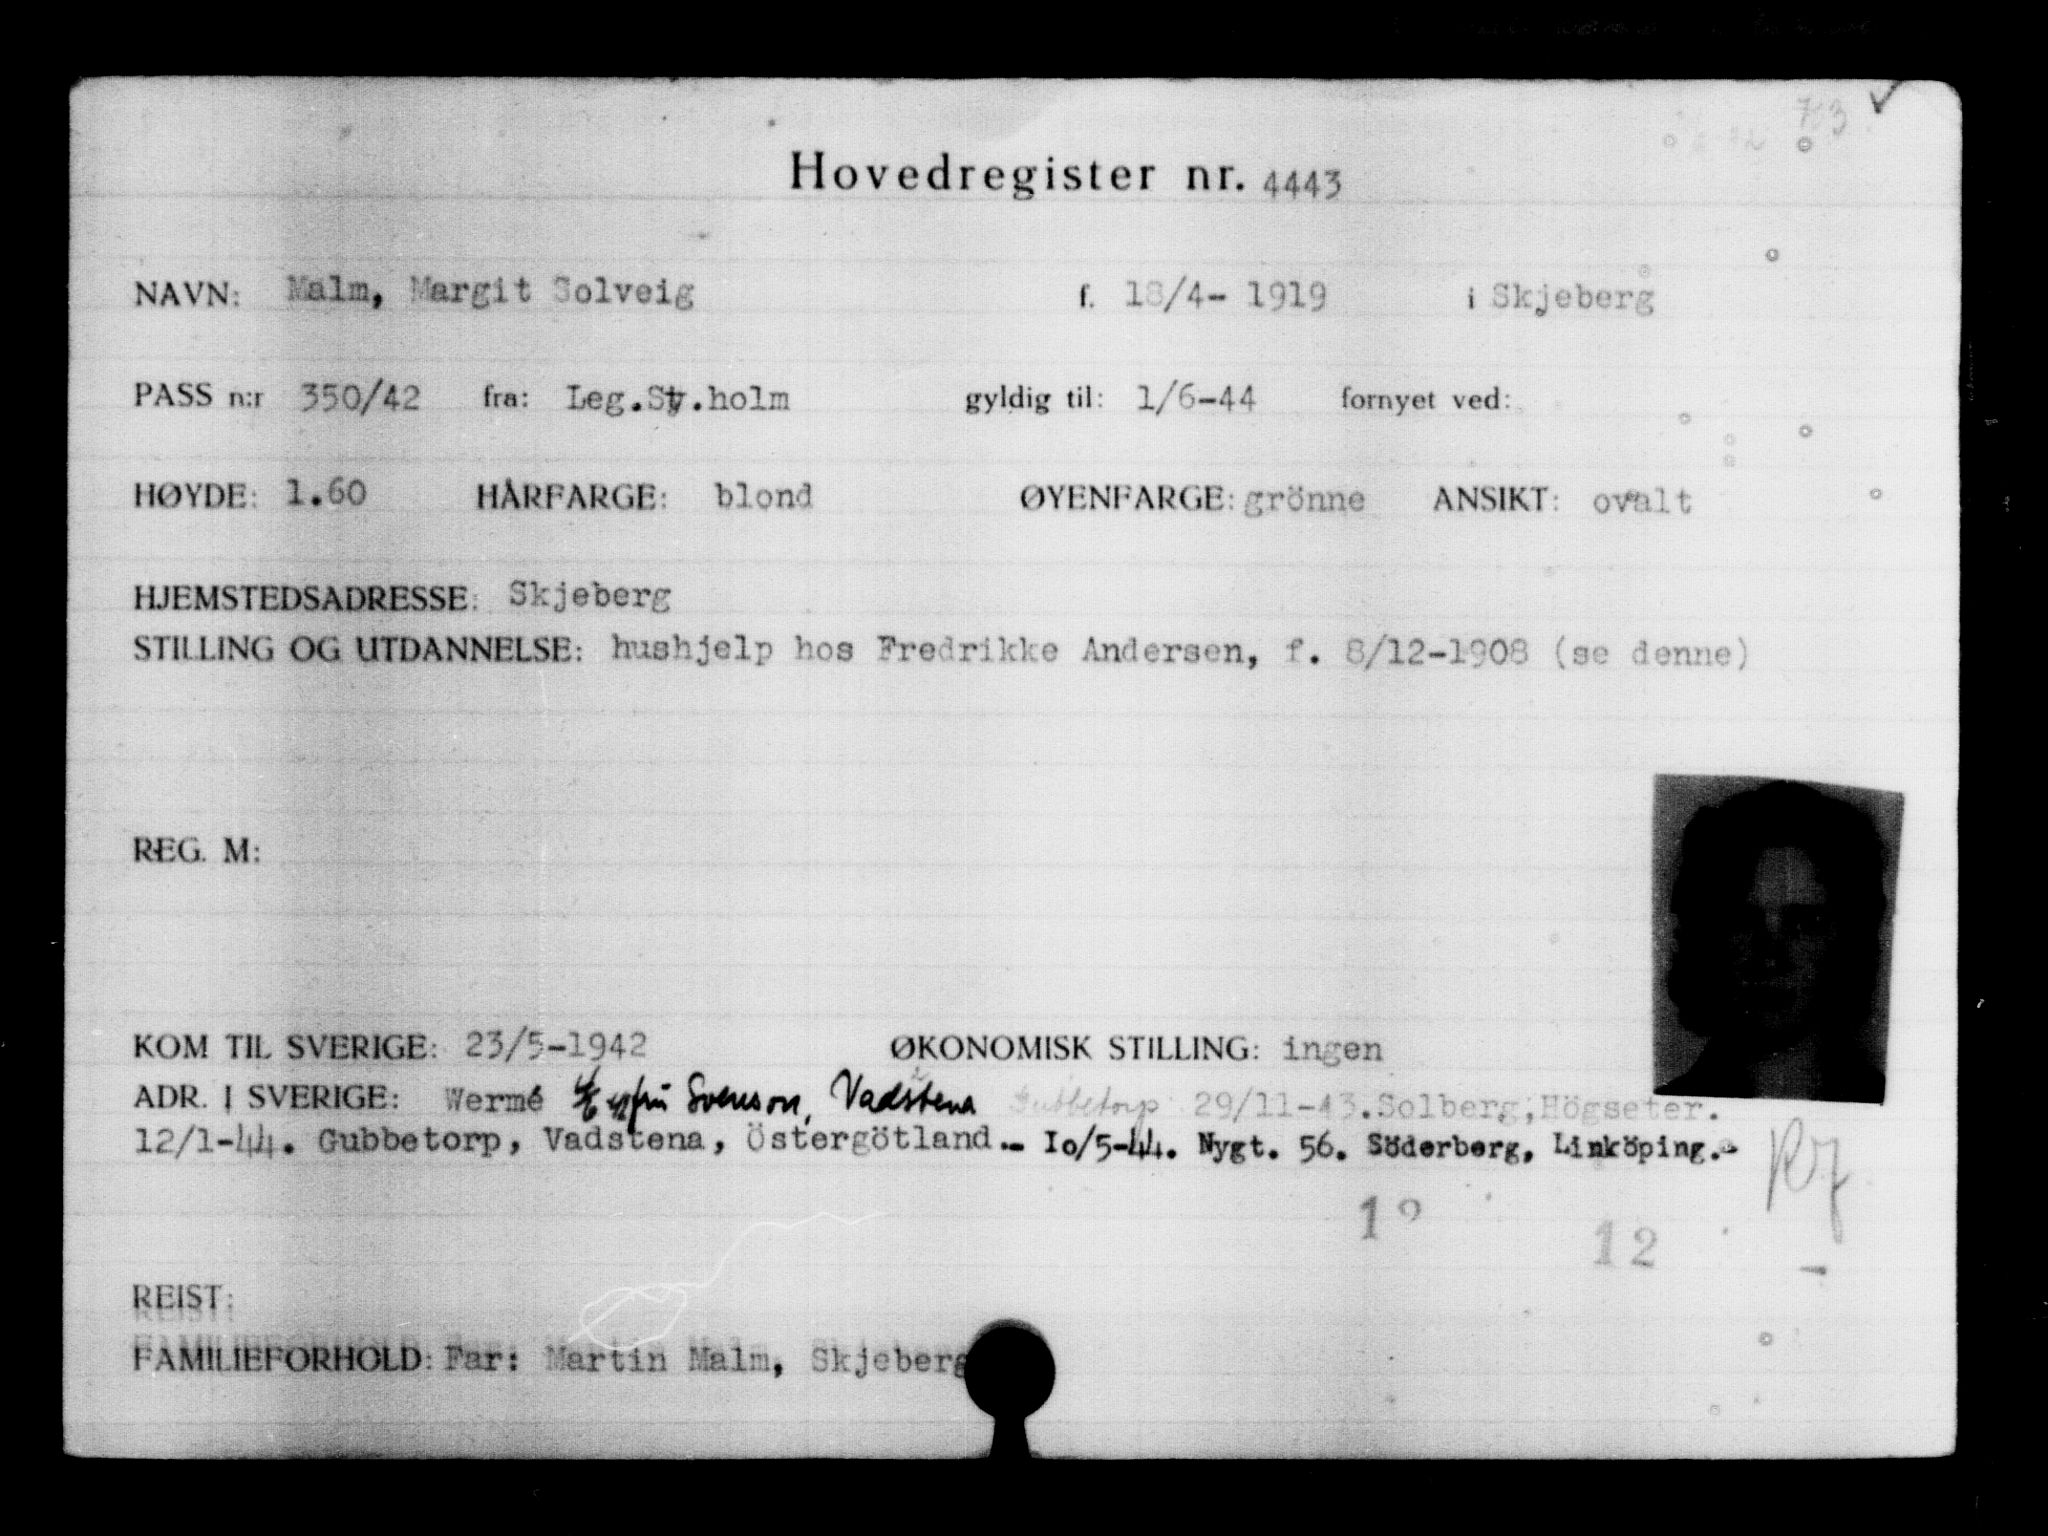 763
Hovedregister nr. 4443
NAVN: Malm, Margit Solveig f. 18/4- 1919 i Skjeberg
PASS n:r 350/42 fra: Leg.St.holm gyldig til: 1/6-44 fornyet ved:
HØYDE: 1.60 HÅRFARGE: blond ØYENFARGE: grönne ANSIKT: ovalt
HJEMSTEDSADRESSE: Skjeberg
STILLING OG UTDANNELSE: hushjelp hos Fredrikke Andersen, f. 8/12-1908 (se denne)
REG. M:
KOM TIL SVERIGE: 23/5-1942 ØKONOMISK STILLING: ingen
ADR. I SVERIGE: Wermé fru Svenson, Vadstena Gubbetorp 29/11-43.Solberg,Högseter.
12/1-44. Gubbetorp, Vadstena, Östergötland.- Io/5-44. Nygt. 56. Söderberg, Linköping.-
12
REIST:
FAMILIEFORHOLD: Far: Martin Malm, Skjeberg